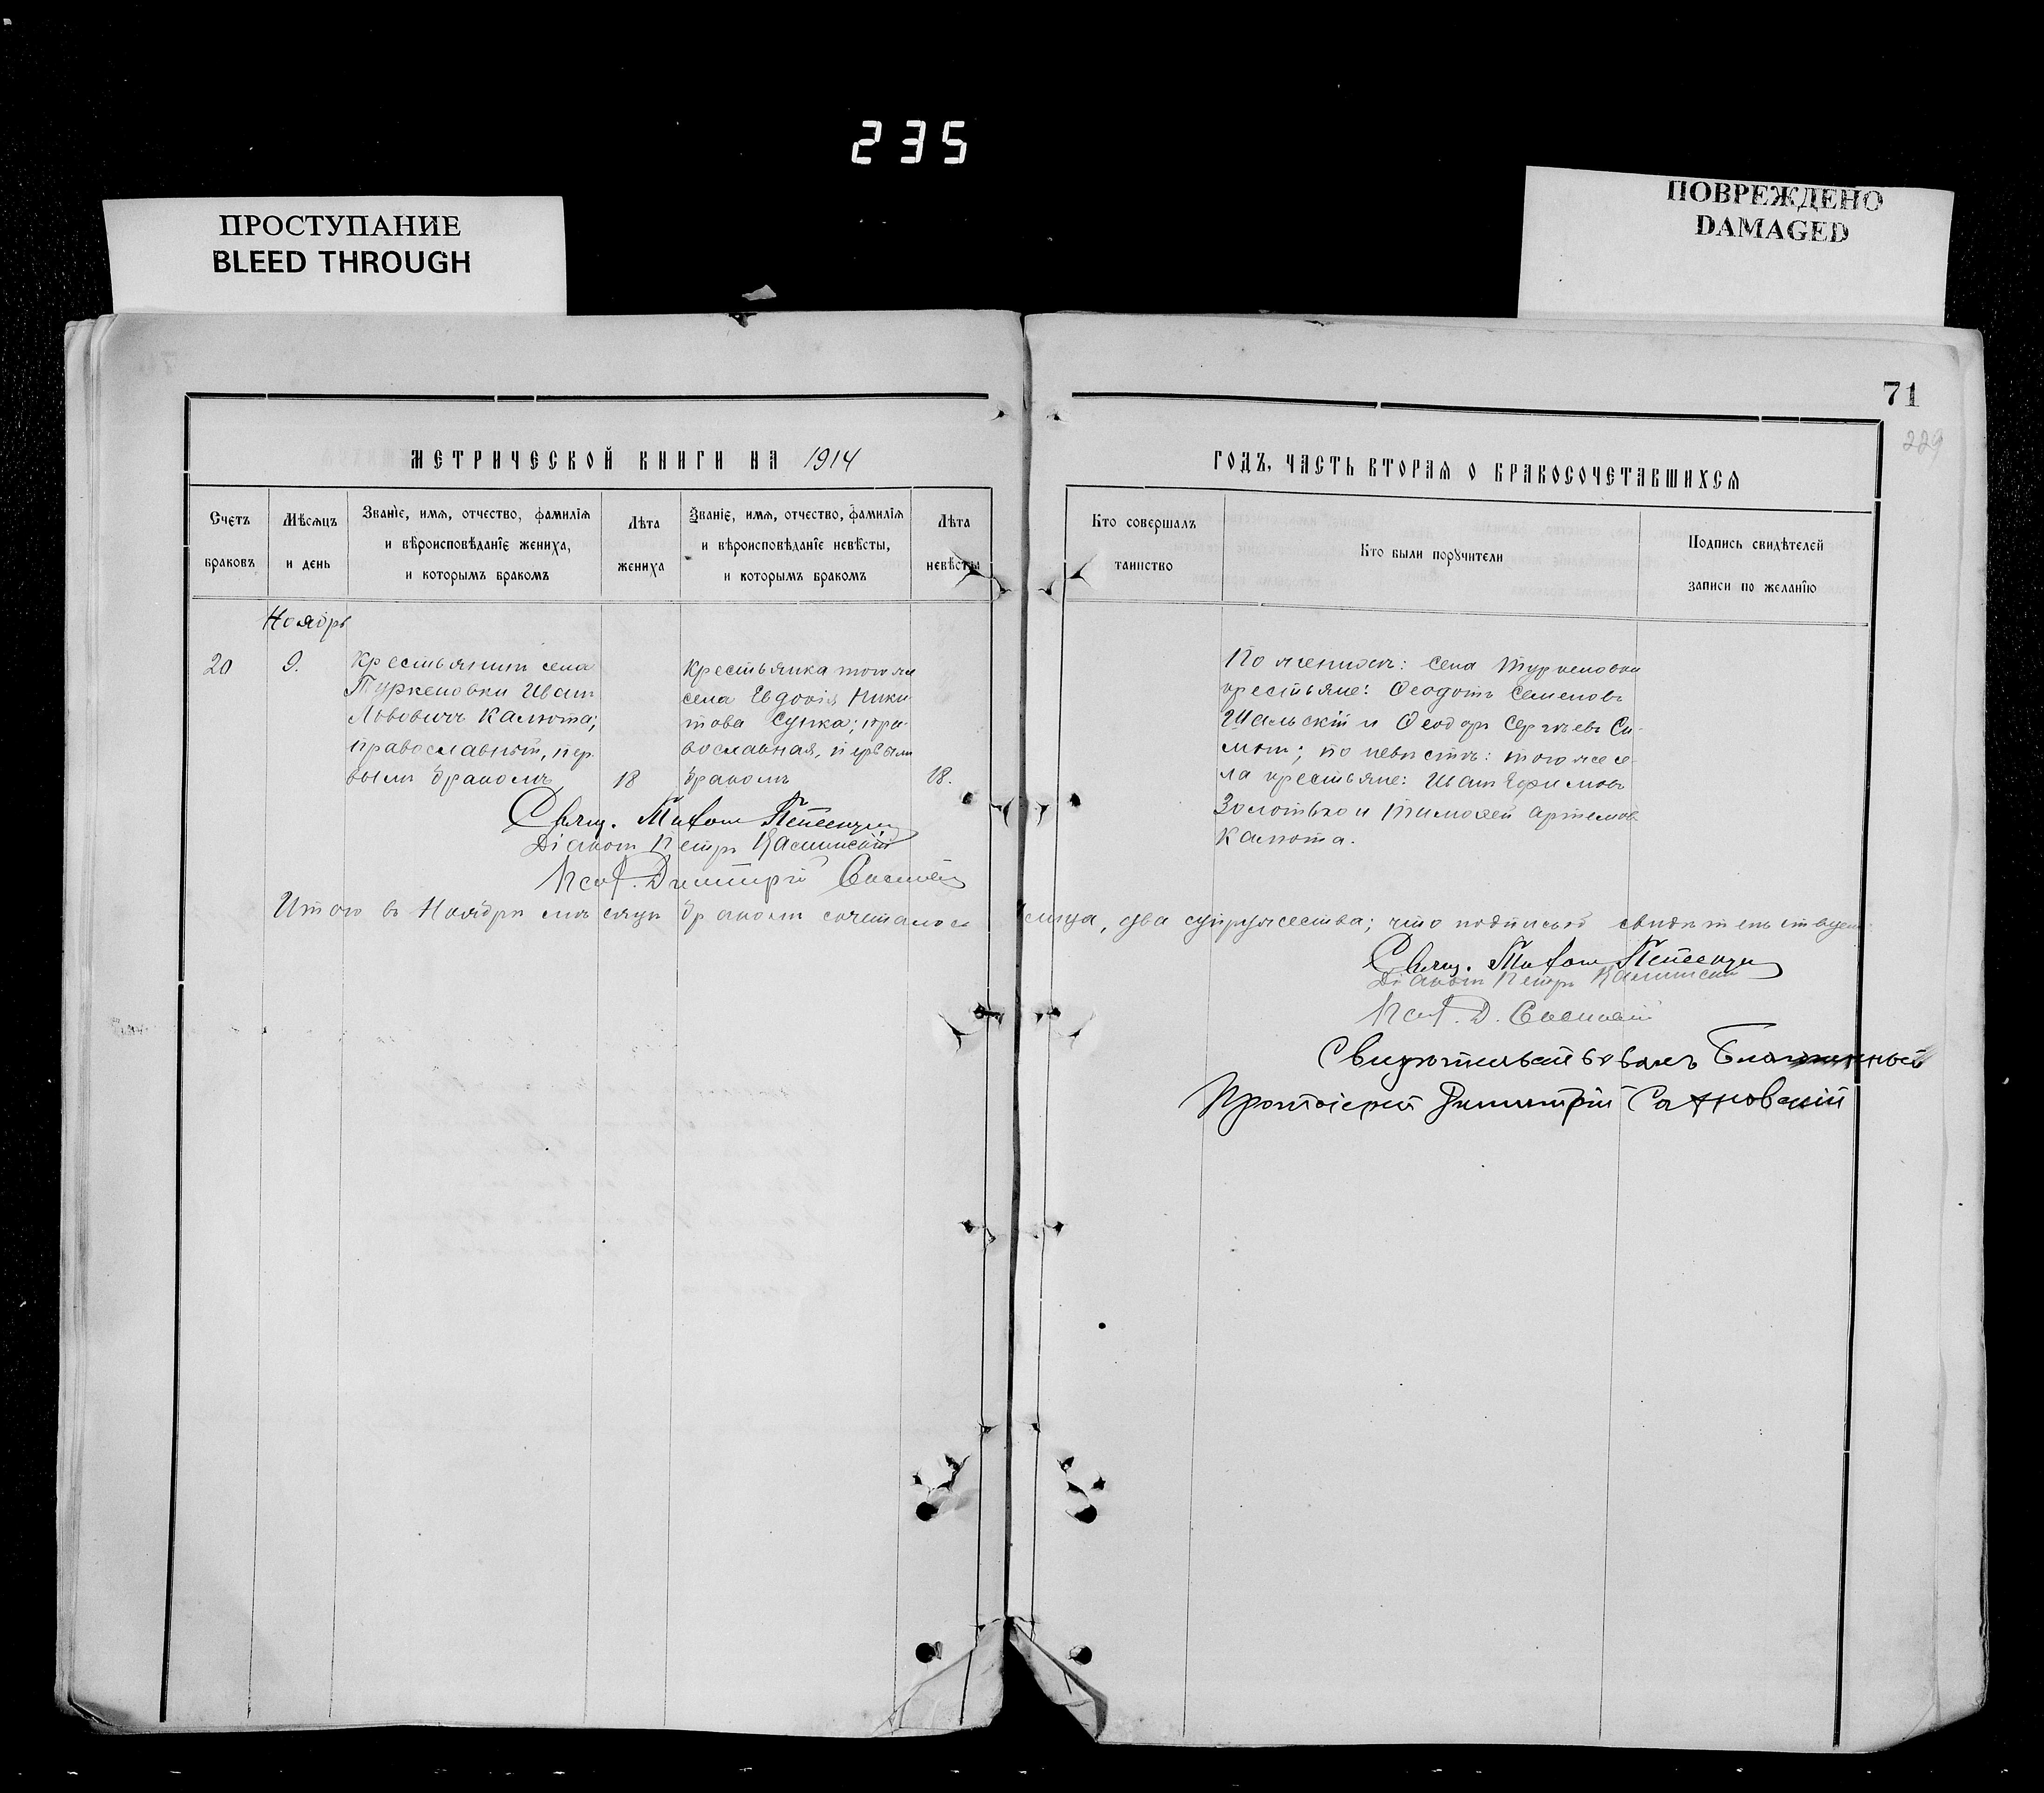 235
ПРОСТУПАНИЕ
BLEED THROUGH
ПОВРЕЖДЕНО
DAMAGED
71
229
МЕТРИЧЕСКОЙ КНИГИ НА 1914
ГОДЪ, ЧАСТЬ ВТОРАЯ О БРАКОСОЧЕТАВШИХСЯ
Счетъ
браковъ
Мѣсяцъ
и день
Званіе, имя, отчество, фамилія
и вѣроисповѣданіе жениха,
и которымъ бракомъ
Лѣта
жениха
Званіе, имя, отчество, фамилія
и вѣроисповѣданіе невѣсты,
и которымъ бракомъ
Лѣта
невѣсты
Кто совершалъ
таинство
Кто были поручители
Подпись свидѣтелей
записи по желанію
Ноябрь
20
9.
Крестьянинъ села
Туркеновки Иванъ
Львовичъ Калюта;
православный, пер
вымъ бракомъ
18
Крестьянка того же
села Евдокія Ники
това Супка; пра-
вославная, первымъ
бракомъ
18.
По женихѣ: села Туркеновки
крестьяне: Ѳеодотъ Семеновъ
Шальскій и Ѳеодоръ Сергѣевъ Си-
монъ; по невѣстѣ: того же се-
ла крестьяне: Иванъ Ефимовъ
Золотько и Тимоѳей Артемовъ
Калюта.
Свящ. Тихонъ
Діаконъ Петръ Калинскій
Псал. Димитрій
Итого въ Ноябрѣ мѣсяцѣ бракомъ сочеталось
лица, два супружества; что подписью свидѣтельствуемъ
Свящ. Тихонъ
Діаконъ Петръ Калинскій
Псал. Д.
Свидѣтельствовалъ Благочинный
Протоіерей Димитрій Сахновскій